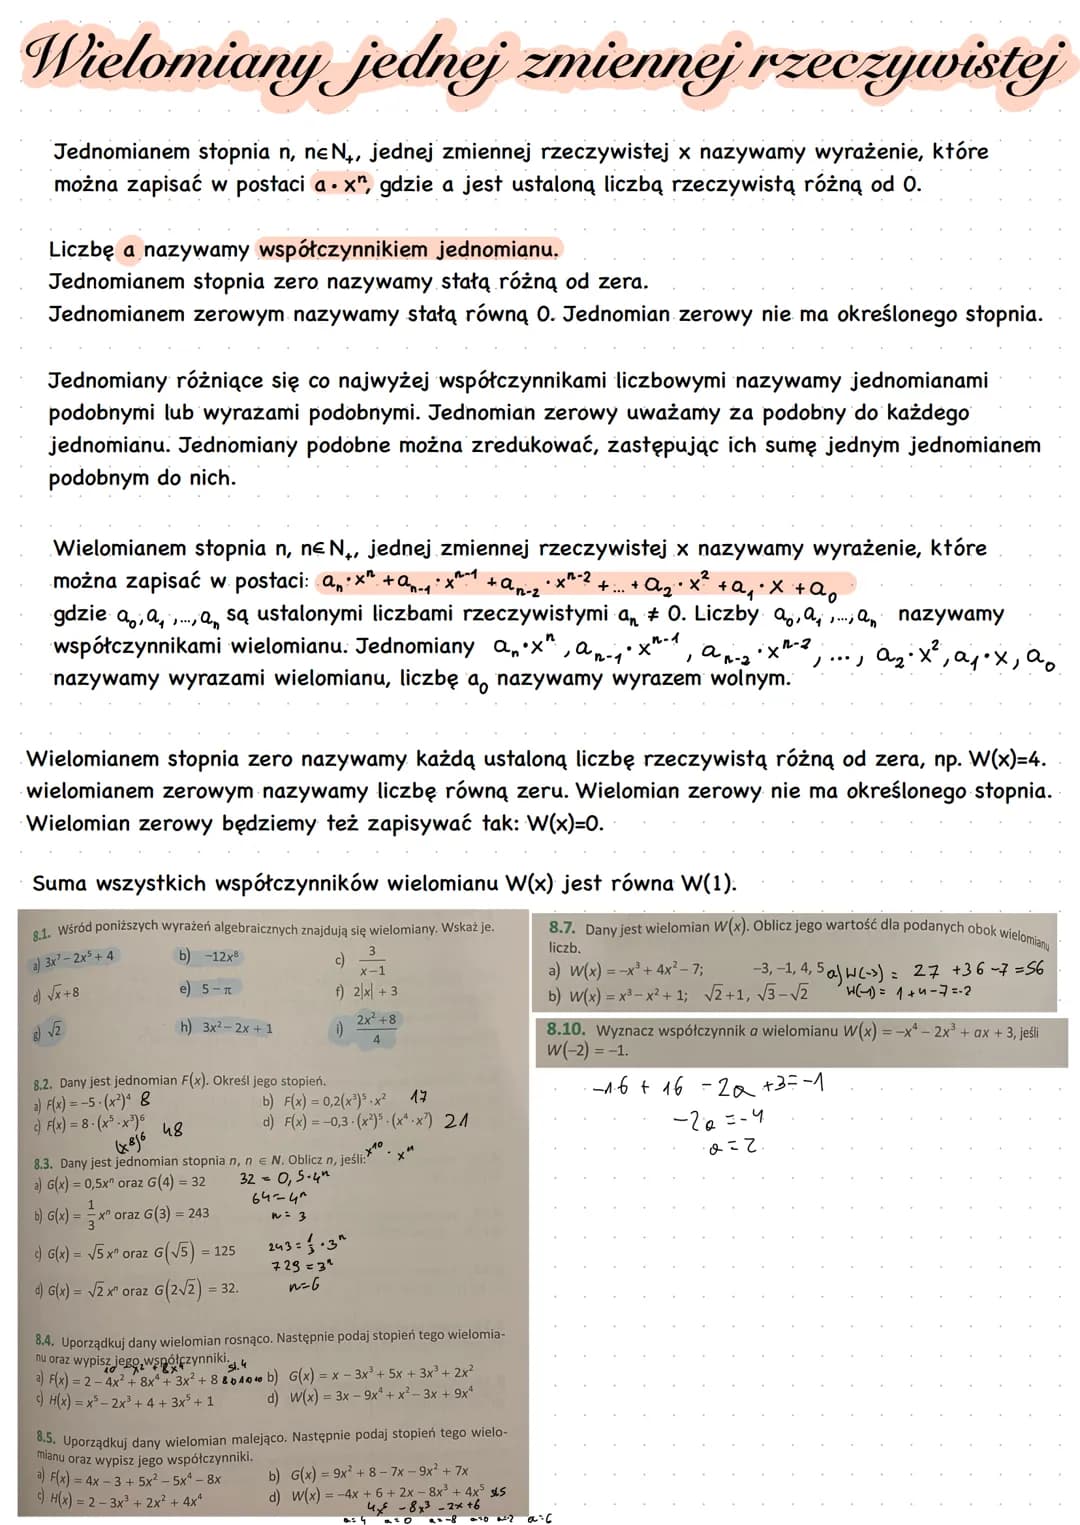 Wielomiany jednej zmiennej rzeczywistej
Jednomianem stopnia n, n∈N₊, jednej zmiennej rzeczywistej x nazywamy wyrażenie, które
można zapisać w postaci a · xⁿ, gdzie a jest ustaloną liczbą rzeczywistą różną od 0.
Liczbę a nazywamy współczynnikiem jednomianu.
Jednomianem stopnia zero nazywamy stałą różną od zera.
Jednomianem zerowym nazywamy stałą równą 0. Jednomian zerowy nie ma określonego stopnia.
Jednomiany różniące się co najwyżej współczynnikami liczbowymi nazywamy jednomianami
podobnymi lub wyrazami podobnymi. Jednomian zerowy uważamy za podobny do każdego
jednomianu. Jednomiany podobne można zredukować, zastępując ich sumę jednym jednomianem
podobnym do nich.
Wielomianem stopnia n, n∈N₊, jednej zmiennej rzeczywistej x nazywamy wyrażenie, które
można zapisać w postaci: aₙ·xⁿ + aₙ₋₁·xⁿ⁻¹ + aₙ₋₂·xⁿ⁻² + ... + a₂·x² + a₁·x + a₀
gdzie a₀,a₁,...,aₙ są ustalonymi liczbami rzeczywistymi aₙ ≠ 0. Liczby a₀,a₁,...,aₙ nazywamy
współczynnikami wielomianu. Jednomiany aₙ·xⁿ, aₙ₋₁·xⁿ⁻¹, aₙ₋₂·xⁿ⁻², ..., a₂·x², a₁·x, a₀
nazywamy wyrazami wielomianu, liczbę a₀ nazywamy wyrazem wolnym.
Wielomianem stopnia zero nazywamy każdą ustaloną liczbę rzeczywistą różną od zera, np. W(x)=4.
wielomianem zerowym nazywamy liczbę równą zeru. Wielomian zerowy nie ma określonego stopnia.
Wielomian zerowy będziemy też zapisywać tak: W(x)=0.
Suma wszystkich współczynników wielomianu W(x) jest równa W(1).
8.1. Wśród poniższych wyrażeń algebraicznych znajdują się wielomiany. Wskaż je.
a) 3x⁷ – 2x⁵ + 4 b) –12x⁸ c) 3/(x – 1)
d) √x + 8 e) 5 – π f) 2|x| + 3
g) √2 h) 3x² – 2x + 1 i) (2x² + 8)/4
8.2. Dany jest jednomian F(x). Określ jego stopień.
a) F(x) = –5 · (x²)⁴ 8 b) F(x) = 0,2(x³)⁵ · x² 17
c) F(x) = 8 · (x⁵ · x³)⁶ 48 d) F(x) = –0,3 · (x²)⁵ · (x⁴ · x⁷) 21
(x⁸)⁶ x¹⁰ · x¹¹
8.3. Dany jest jednomian stopnia n, n ∈ N. Oblicz n, jeśli:
a) G(x) = 0,5xⁿ oraz G(4) = 32 32 = 0,5·4ⁿ
64 = 4ⁿ
n = 3
b) G(x) = 1/3 xⁿ oraz G(3) = 243
243 = 1/3 · 3ⁿ
729 = 3ⁿ
n = 6
c) G(x) = √5 xⁿ oraz G(√5) = 125
d) G(x) = √2 xⁿ oraz G(2√2) = 32.
8.4. Uporządkuj dany wielomian rosnąco. Następnie podaj stopień tego wielomia-
nu oraz wypisz jego współczynniki.
10 – x² + 8x⁴ st.4
a) F(x) = 2 – 4x² + 8x⁴ + 3x² + 8 b) G(x) = x – 3x³ + 5x + 3x³ + 2x²
c) H(x) = x⁵ – 2x³ + 4 + 3x⁵ + 1 d) W(x) = 3x – 9x⁴ + x² – 3x + 9x⁴
8.5. Uporządkuj dany wielomian malejąco. Następnie podaj stopień tego wielo-
mianu oraz wypisz jego współczynniki.
a) F(x) = 4x – 3 + 5x² – 5x⁴ – 8x b) G(x) = 9x² + 8 – 7x – 9x² + 7x
c) H(x) = 2 – 3x³ + 2x² + 4x⁴ d) W(x) = –4x + 6 + 2x – 8x³ + 4x⁵ st5
4x⁵ – 8x³ – 2x + 6
a=4 a=0 a=-8 a=0 a=-2 a=6
8.7. Dany jest wielomian W(x). Oblicz jego wartość dla podanych obok wielomianu
liczb.
a) W(x) = –x³ + 4x² – 7; –3, –1, 4, 5 a) W(-3) = 27 + 36 – 7 = 56
b) W(x) = x³ – x² + 1; √2 + 1, √3 – √2 W(-1) = 1 + 4 – 7 = -2
8.10. Wyznacz współczynnik a wielomianu W(x) = –x⁴ – 2x³ + ax + 3, jeśli
W(–2) = –1.
-16 + 16 - 2a + 3 = -1
-2a = -4
a = 2